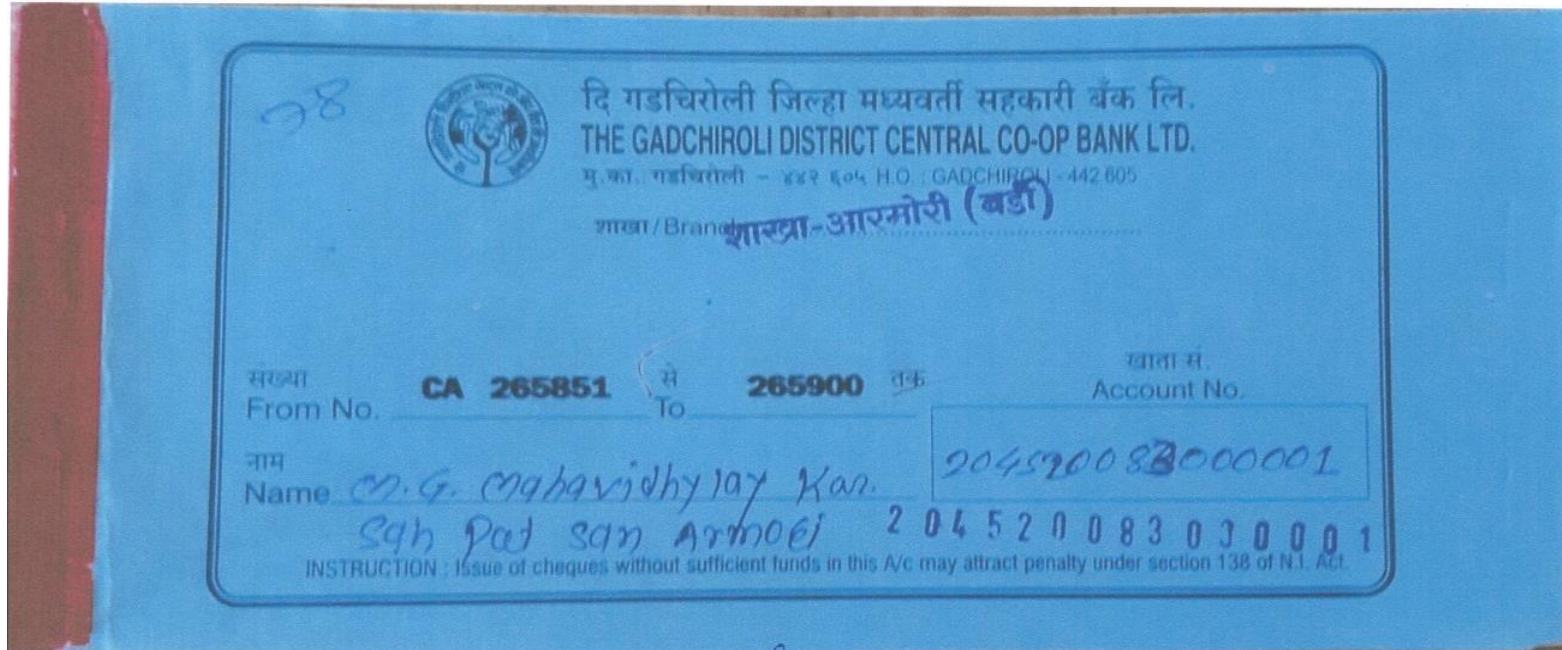 28
दि गडचिरोली जिल्हा मध्यवर्ती सहकारी बँक लि.
THE GADCHIROLI DISTRICT CENTRAL CO-OP BANK LTD.
मु.का. गडचिरोली - ४४२ ६०५ H.O. : GADCHIROLI - 442 605
शाखा / Branch शाखा-आरमोरी (बर्डी)
संख्या से तक खाता सं.
From No. CA 265851 To 265900 Account No.
नाम
Name M.G. Mahavidhylay Kar. 204520083000001
Sah Pat San Armori 204520083000001
INSTRUCTION : Issue of cheques without sufficient funds in this A/c may attract penalty under section 138 of N.I. Act.